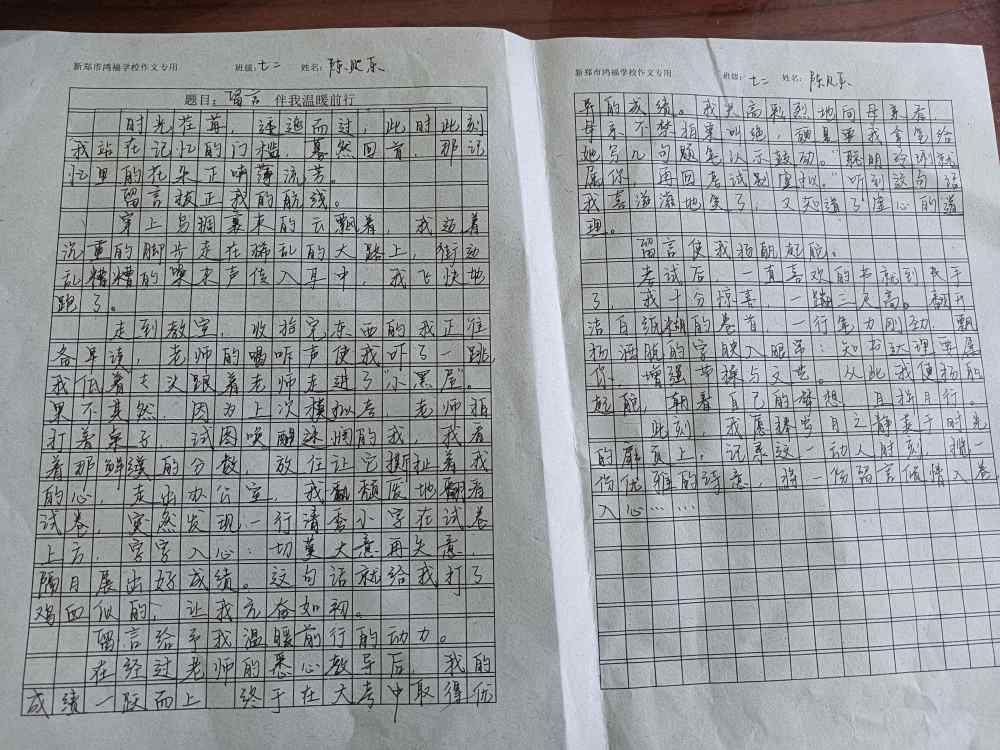 新郑市鸿福学校作文专用 班级：七二 姓名：陈
题目：留言 伴我温暖前行
时光荏苒，逐逝而过，此时此刻
我站在记忆的门槛，蓦然回首，那记
忆里的花朵正喷薄流芳。
留言拨正我的航线。
穿上乌绸裹来的云飘着，我迈着
沉重的脚步走在稀乱的大路上，街边
乱糟糟的嗓末声传入耳中，我飞快地
跑了。
走到教室，收拾完东西的我正准
备早读，老师的喝咋声使我吓了一跳
我低着头跟着老师走进了“小黑屋”。
果不其然，因为上次模拟考，老师拍
打着桌子，试图唤醒迷惘的我，我看
着那鲜红的分数，放任让它撕扯着我
的心，走出办公室，我颓废地翻看
试卷，突然发现一行清秀小字在试卷
上方，字字入心：切莫大意再失意，
隔月展出好成绩。这句话就给我打了
鸡血似的，让我充奋如初。
留言给予我温暖前行的动力。
在经过老师的悉心教导后，我的
成绩一跃而上，终于在大考中取得优
新郑市鸿福学校作文专用 班级：七二 姓名：陈
异的成绩。我兴高彩烈地向母亲看
母亲不禁拍案叫绝，硬是要我拿笔给
她写几句题笔以示鼓动。“聪明伶俐就
属你，再回考试别虚拟。”听到这句话
我喜滋滋地笑了，又知道了虚心的道
理。
留言使我扬帆起舵。
考试后，一直喜欢的书就到我手
了，我十分惊喜，一蹦二尺高。翻开
洁白纸糊的卷首，一行笔力刚劲，飘
扬洒脱的字映入眼帘：知书达理要属
你，增强草操与文艺。从此我便扬帆
起舵，朝着自己的梦想，月将月行。
此刻，我愿捧掌月之静走于时光
的扉页上，记录这一动人时刻，携一
份优雅的诗意，将一份留言倾情入卷
入心……